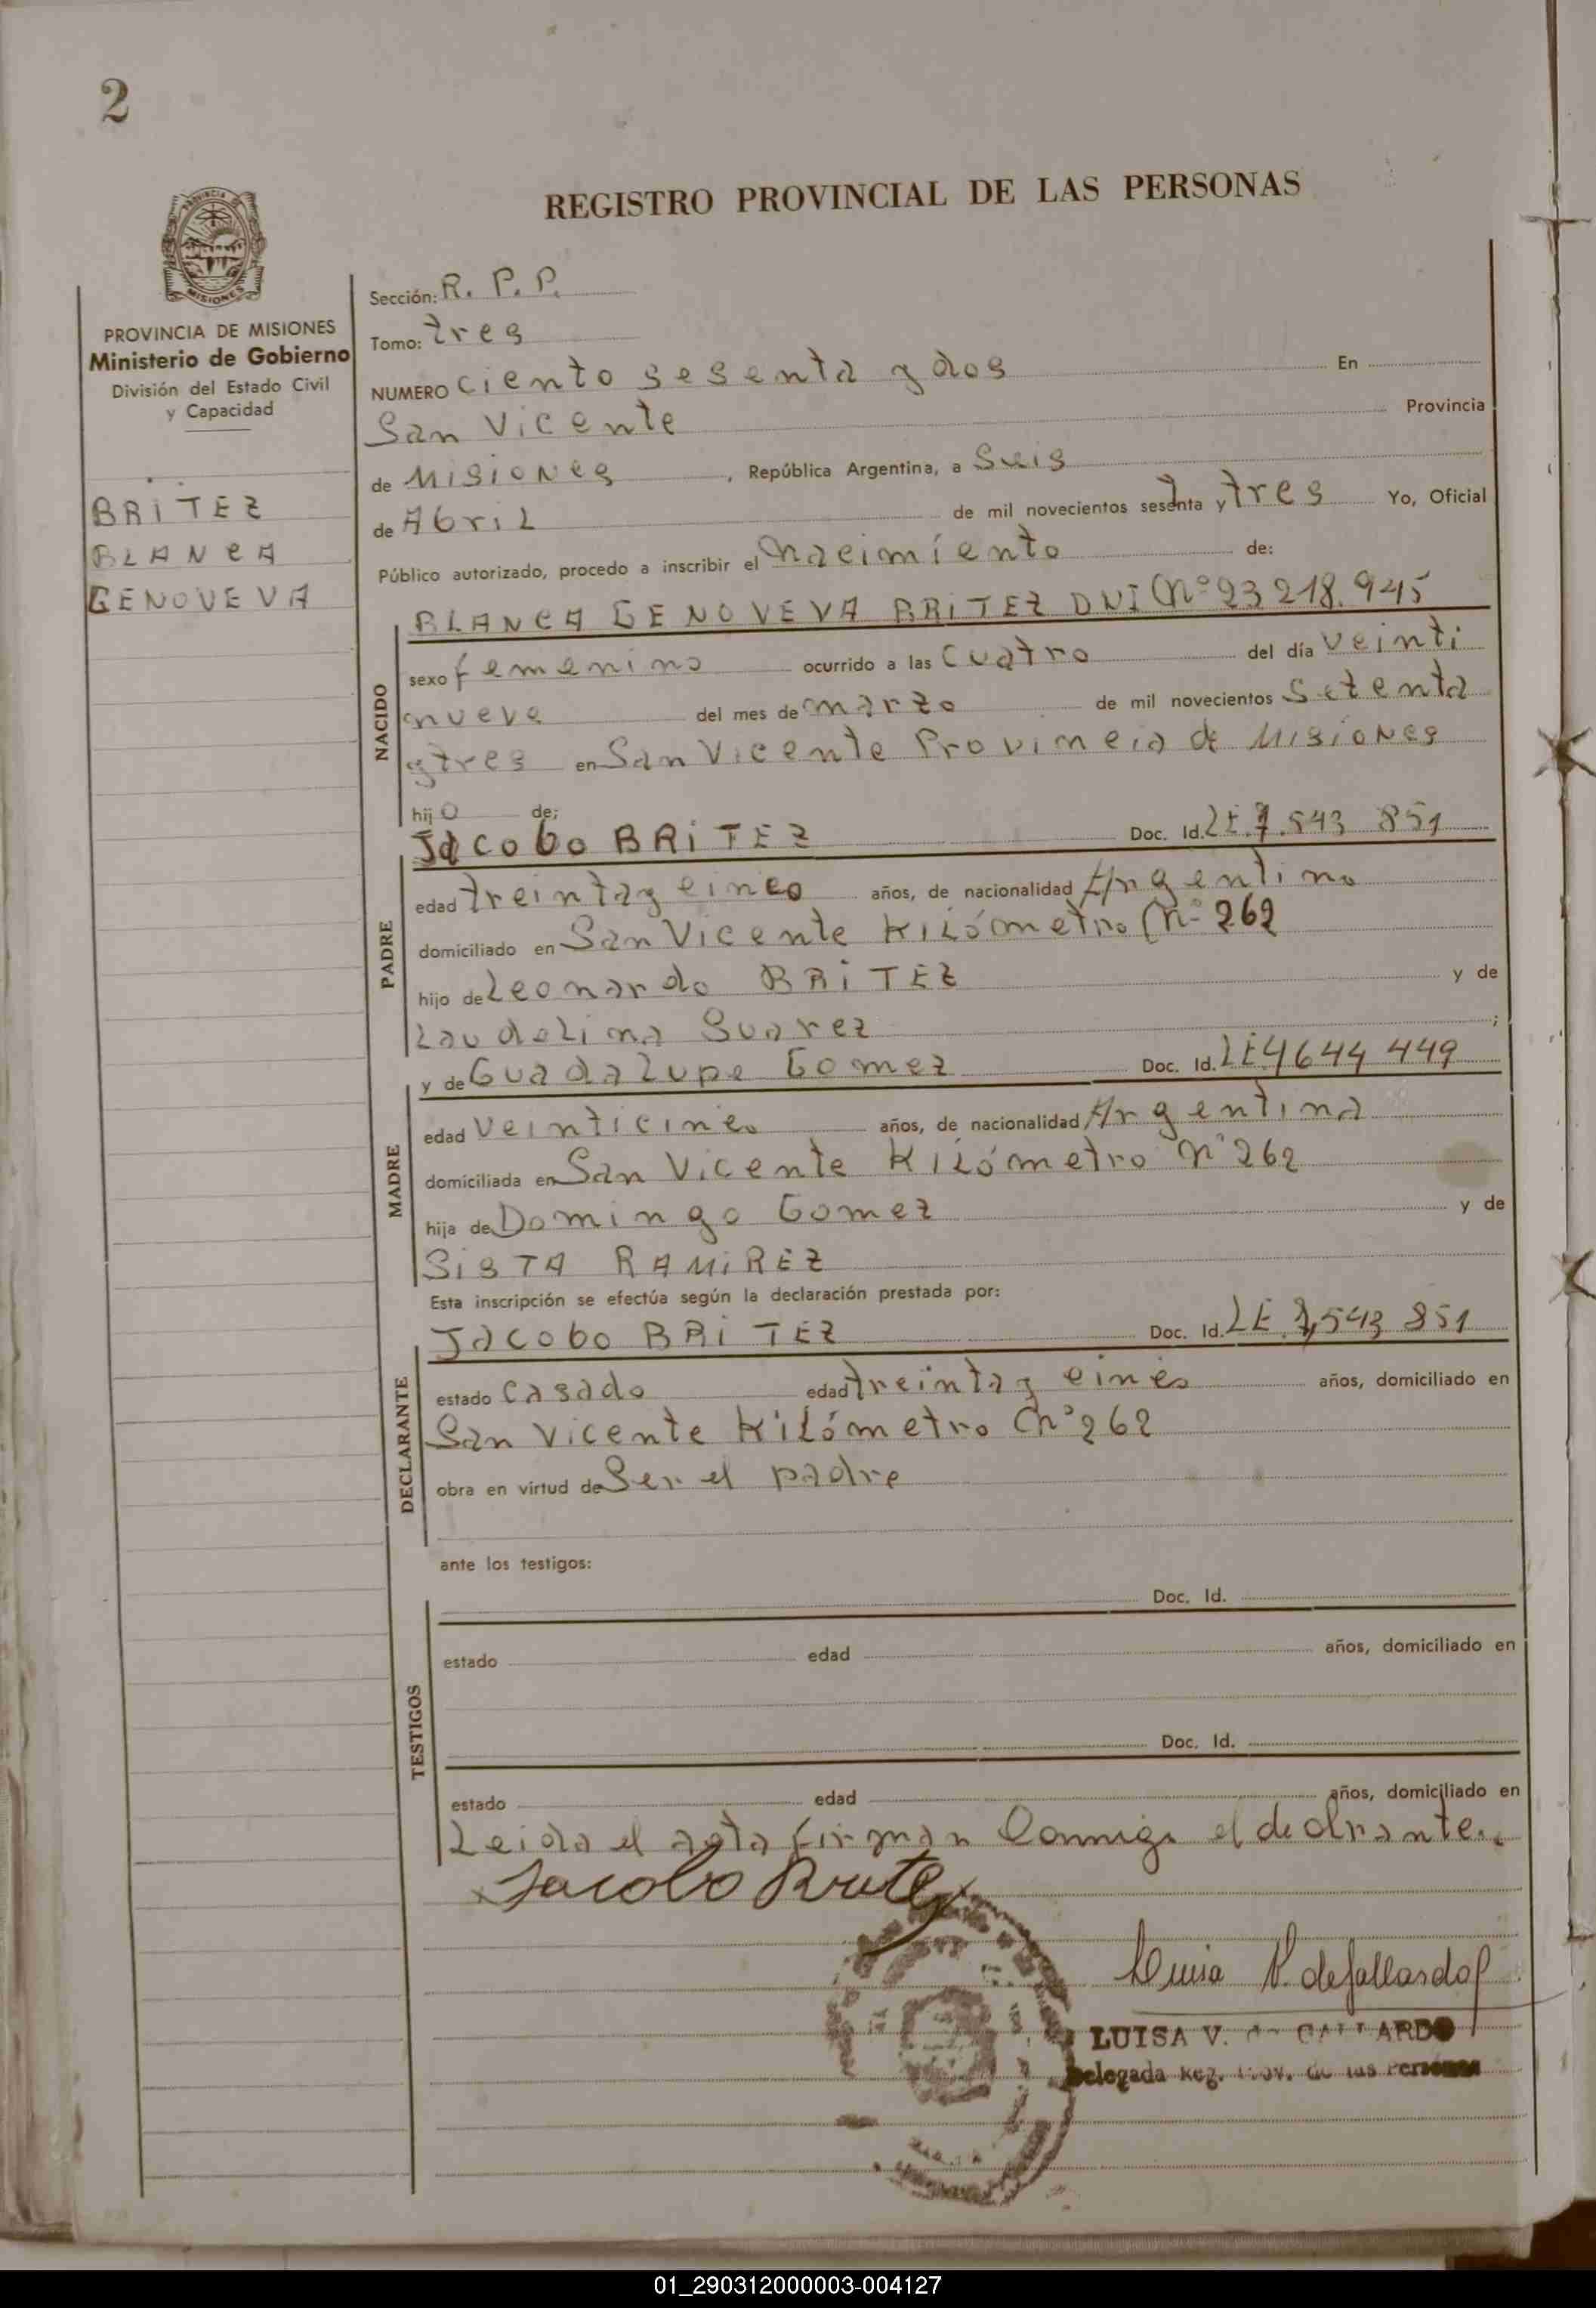 2
REGISTRO PROVINCIAL DE LAS PERSONAS
PROVINCIA DE MISIONES
Ministerio de Gobierno
División del Estado Civil
y Capacidad
BRITEZ
BLANCA
GENOVEVA
Sección: R. P. P.
Tomo: tres
NUMERO ciento sesenta y dos En
San Vicente Provincia
de Misiones, República Argentina, a Seis
de Abril de mil novecientos setenta y tres Yo, Oficial
Público autorizado, procedo a inscribir el nacimiento de:
NACIDO
BLANCA GENOVEVA BRITEZ DNI Nº 23 218.945
sexo femenino ocurrido a las cuatro del día veinti
nueve del mes de marzo de mil novecientos setenta
y tres en San Vicente Provincia de Misiones
hijo de;
PADRE
Jacobo BRITEZ Doc. Id. LE.7.543 851
edad treinta y cinco años, de nacionalidad Argentino
domiciliado en San Vicente Kilómetro Nº 262
hijo de Leonardo BRITEZ y de
Laudelina Suarez ;
MADRE
y de Guadalupe Gomez Doc. Id. LE 4644 449
edad Veinticinco años, de nacionalidad Argentina
domiciliada en San Vicente Kilómetro Nº 262
hija de Domingo Gomez y de
SISTA RAMIREZ
Esta inscripción se efectúa según la declaración prestada por:
DECLARANTE
Jacobo BRITEZ Doc. Id. LE 7,543 851
estado casado edad treinta y cinco años, domiciliado en
San Vicente Kilómetro Nº 262
obra en virtud de Ser el padre
ante los testigos:
TESTIGOS
Doc. Id.
estado edad años, domiciliado en
Doc. Id.
estado edad años, domiciliado en
Leida el acta firman Conmigo el declarante.
Jacobo Britez
Luisa V. de Gallardo
LUISA V. de GALLARDO
Delegada Reg. Prov. de las Personas
01_290312000003-004127